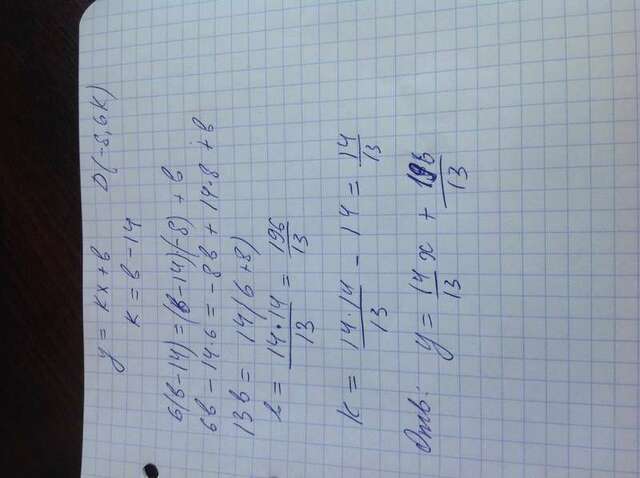 y = kx + b D(-8, 6k)
k = b - 14
6(b-14) = (b-14)·(-8) + b
6b - 14·6 = -8b + 14·8 + b
13b = 14(6+8)
b = \frac{14·14}{13} = \frac{196}{13}
k = \frac{14·14}{13} - 14 = \frac{14}{13}
Отв: y = \frac{14}{13}x + \frac{196}{13}